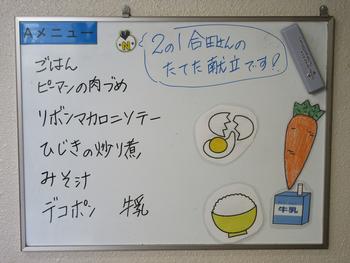 Aメニュー
2の1 合田さんの
たてた献立です!
ごはん
ピーマンの肉づめ
リボンマカロニソテー
ひじきの炒り煮
みそ汁
デコポン 牛乳
N
牛乳